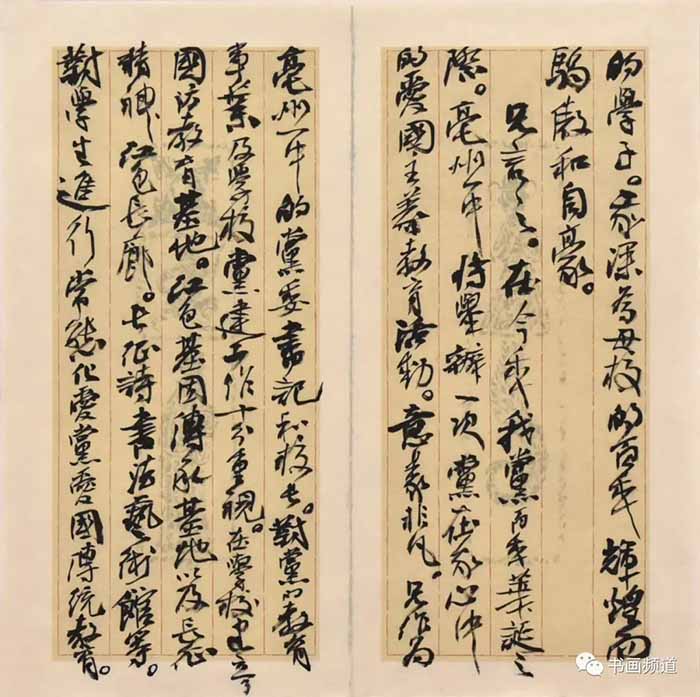 的學子。我深為母校的百年輝煌而
驕傲和自豪。
兄言之。在今年我黨百年華誕之
際。亳州一中將舉辦一次黨在我心中
的愛國主義教育活動。意義非凡。兄作為
亳州一中的黨委書記和校長。對黨的教育
事業及學校黨建工作十分重視。在學校建立了
國防教育基地。紅色基因傳承基地以及長征
精神紅色長廊。長征詩書法藝術館等。
對學生進行常態化愛黨愛國傳統教育。
书画频道